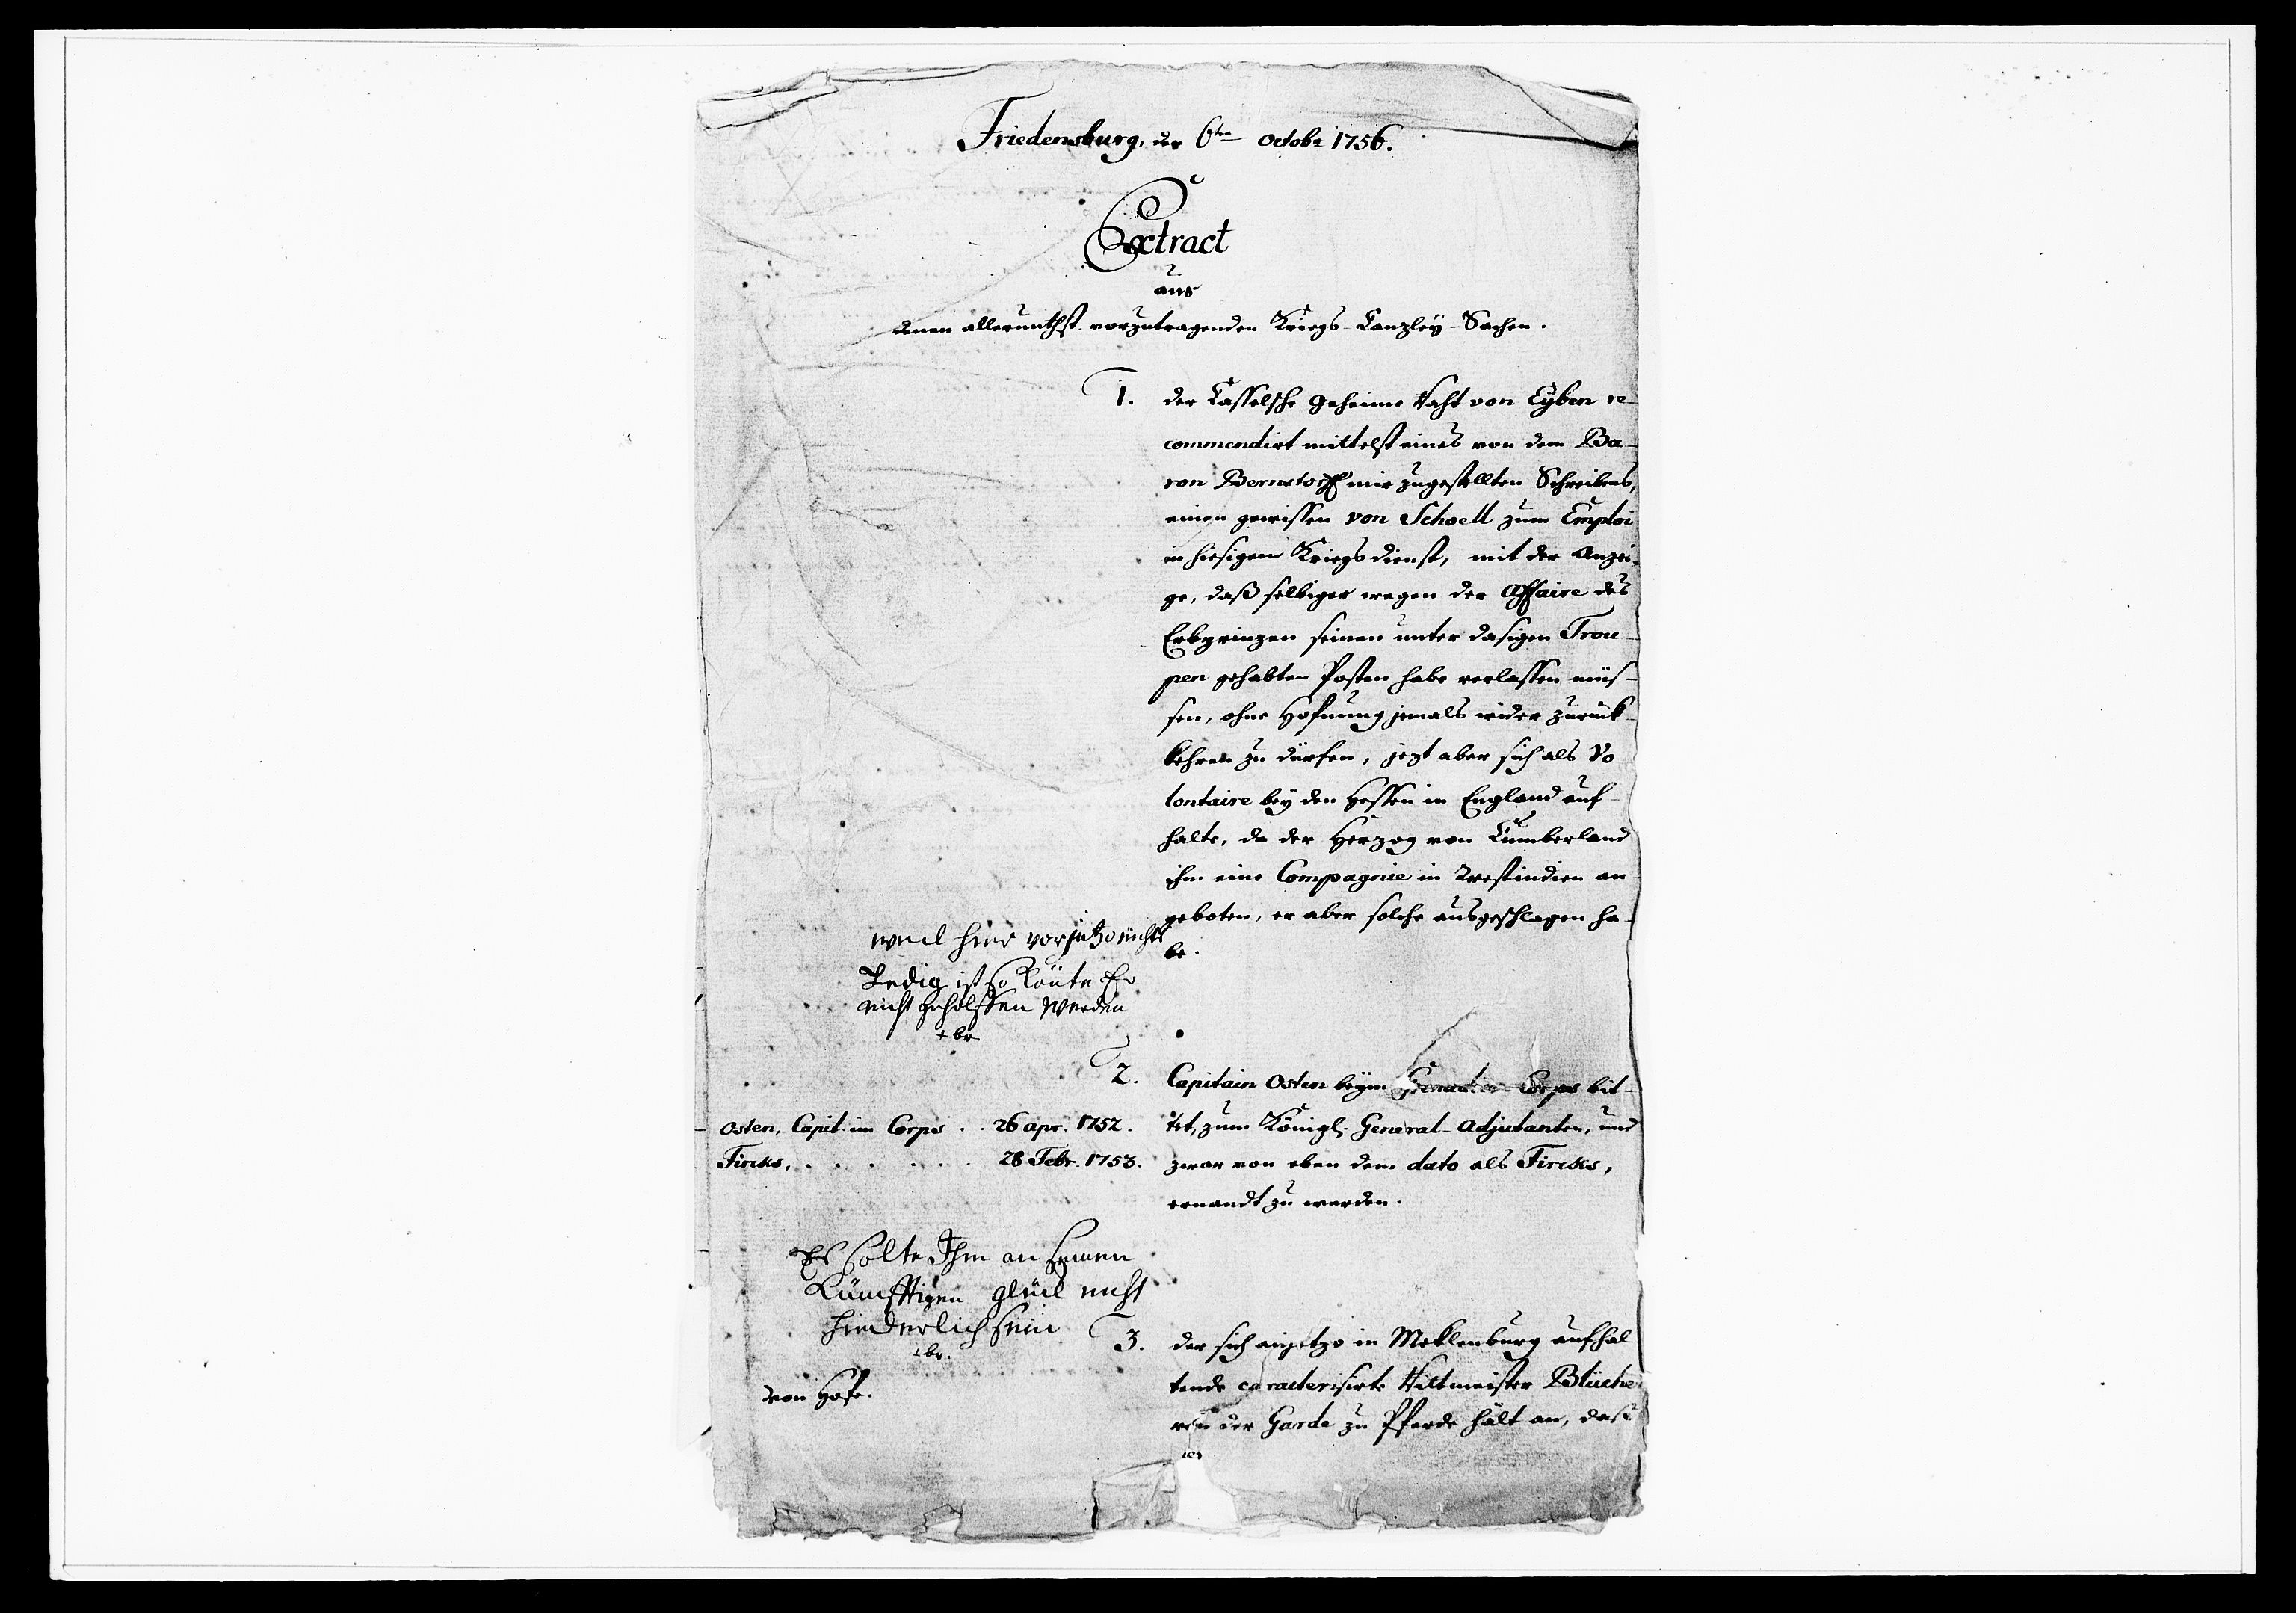 Friedensburg, der 6ten Octobr 1756.
Extract
aus
denen allerunthst. vorzutragenden Kriegs-Canzley-Sachen.
1. der Casselsche Geheime Raht von Eyben re-
commendirt mittelst eines von dem Ba-
ron Bernstorff mir zugestellten Schreibens,
einen gewissen von Schoell zum Emploi
in hiesigem Kriegsdienst, mit der Anzei-
ge, daß selbiger wegen der Affaire des
Erbprinzen seinen unter dasigen Trou-
pen gehabten Posten habe verlassen müs-
sen, ohne Hofnung jemals wider zurück-
kehren zu dürfen, jezt aber sich als Vo
lontaire bey den Hessen in England auf-
halte, da der Herzog von Cumberland
ihm eine Compagnie in Westindien an
geboten, er aber solche ausgeschlagen ha-
be.
weil hier vorjetzo nichts
Ledig ist so Könte Er
nicht geholffen werden
2. Capitain Osten beym Grenadier-Corps bit-
tet, zum Königl. General-Adjutanten, und
zwar von eben dem dato als Fircks,
ernandt zu werden.
Osten, Capit. im Corps . . 26 apr. 1752.
Fircks, . . . . . . . 28 Febr. 1753.
Es solte Ihm an seinen
Künfftigen glück nicht
hinderlich sein
3. der sich anjetzo in Meklenburg aufhal
tende caracterisirte Rittmeister Blücher
von der Garde zu Pferde hält an, daß
von Hofe.